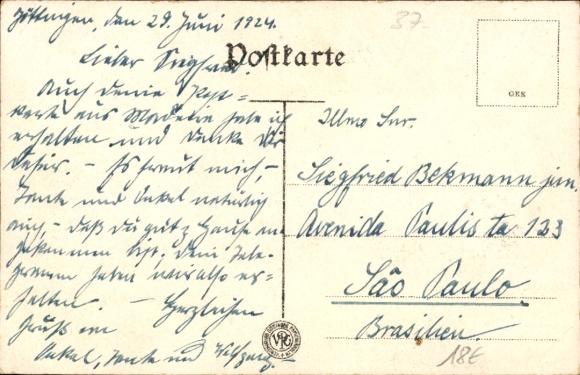 Göttingen, den 29. Juni 1924.
Lieber Siegfried!
Auch deine Post-
karte aus Madeira habe ich
erhalten und danke dir
dafür. – Es freut mich, –
Tante und Onkel natürlich
auch, – daß du gut z. Hause an-
gekommen bist. Dein Tele-
gramm haben wir also er-
halten. – Herzlichen
Gruß von
Onkel, Tante und Wolfgang. –
37-
Postkarte
GEK
Illmo Snr.
Siegfried Bekmann jun.
Avenida Paulista 123
São Paulo.
Brasilien.
18€